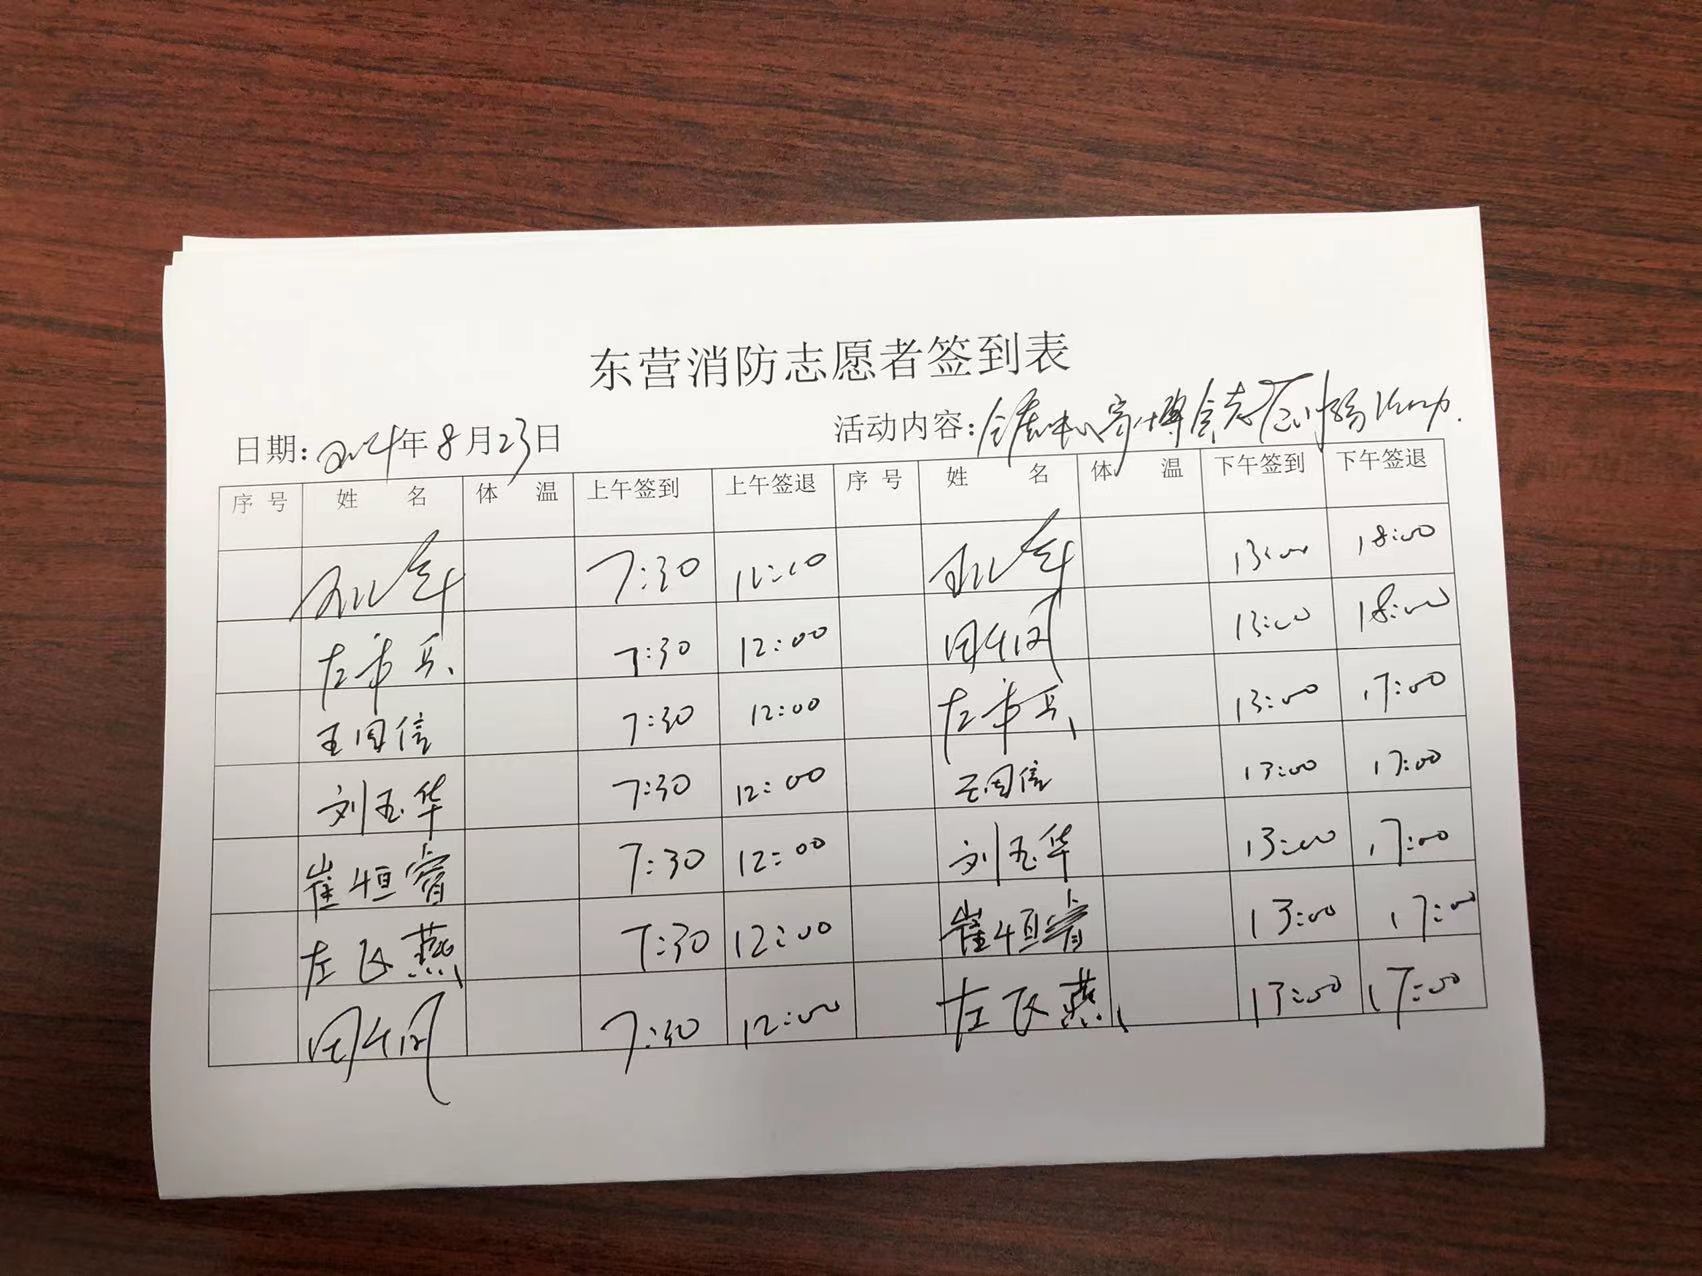 东营消防志愿者签到表
日期: 2024年8月23日 活动内容: 会展中心 博会志愿服务活动.
序号 姓名 体温 上午签到 上午签退 序号 姓名 体温 下午签到 下午签退
7:30 12:00 13:00 18:00
左希兵 7:30 12:00 13:00 18:00
王国信 7:30 12:00 左希兵 13:00 17:00
刘玉华 7:30 12:00 王国信 13:00 17:00
崔恒睿 7:30 12:00 刘玉华 13:00 17:00
左飞燕 7:30 12:00 崔恒睿 13:00 17:00
7:30 12:00 左飞燕 13:00 17:00